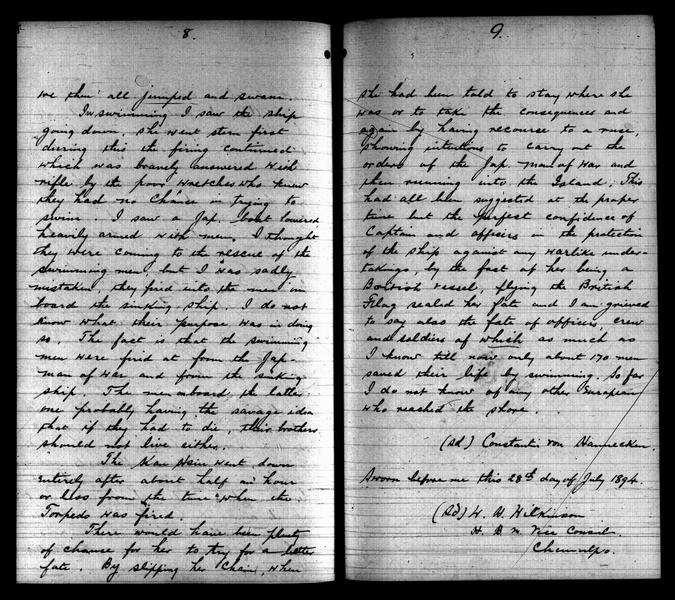 8.
we then all jumped and swam.
In swimming I saw the ship
going down, she went stern first
during this the firing continued
which was bravely answered with
rifle by the poor wretches who knew
they had no chance in trying to
swim. I saw a Jap. boat lowered
heavily armed with men, I thought
they were coming to the rescue of the
swimming men, but I was sadly
mistaken, they fired into the men on
board the sinking ship. I do not
know what their purpose was in doing
so. The fact is that the swimming
men were fired at from the Jap.
man of war and from the sinking
ship. The men onboard the latter
one probably having the savage idea
that if they had to die, their brothers
should not live either.
The Kow Hsin went down
entirely after about half an hour
or less from the time when the
Torpedo was fired.
There would have been plenty
of chance for her to try for a better
fate. By slipping her Chain, when
9.
she had been told to stay where she
was or to take the consequences and
again by having recourse to a ruse,
showing intentions to carry out the
orders of the Jap. man of war and
then running into the Island. This
had all been suggested at the proper
time but the perfect confidence of
Captain and officers in the protection
of the ship against any warlike under-
takings, by the fact of her being a
British vessel, flying the British
Flag sealed her fate and I am grieved
to say also the fate of officers, crew
and soldiers of which as much as
I know till now only about 170 men
saved their life by swimming. So far
I do not know of any other European
who reached the shore.
(sd) Constantin von Hannecken.
Sworn before me this 28th day of July 1894.
(Sd) W. H. Wilkinson
H. B. M. Vice Consul.
Chemulpo.